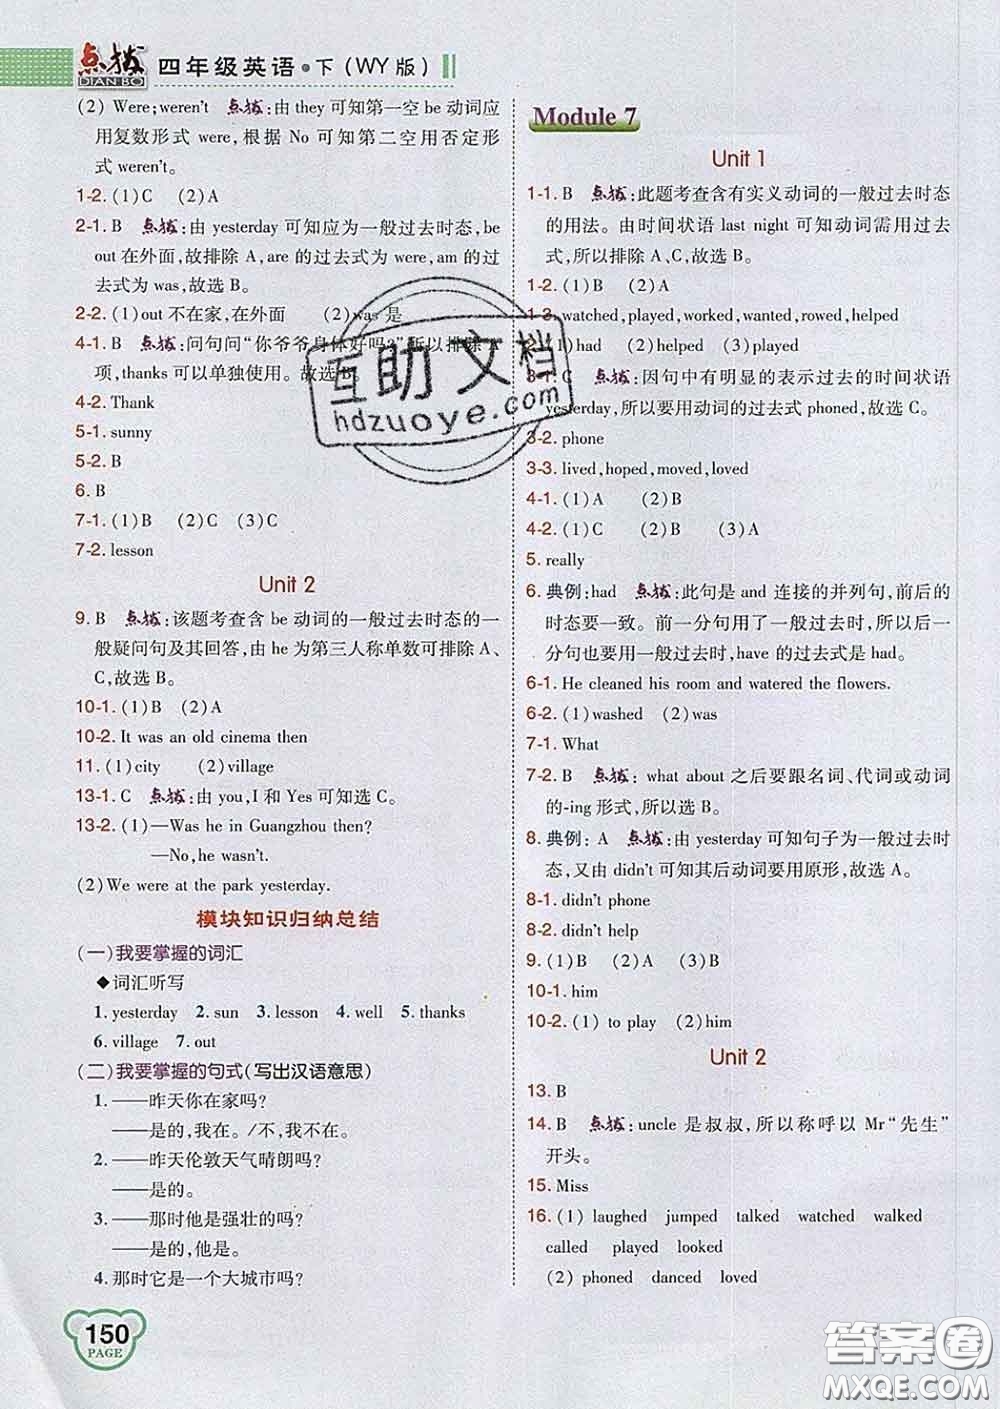 点拨
DIAN BO
四年级英语·下(WY版)
(2) Were; weren't 点拨:由 they 可知第一空 be 动词应
用复数形式 were,根据 No 可知第二空用否定形
式 weren't。
1-2. (1)C (2)A
2-1. B 点拨:由 yesterday 可知应为一般过去时态,be
out 在外面,故排除 A,are 的过去式为 were,am 的过
去式为 was,故选 B。
2-2. (1)out 不在家,在外面 (2)was 是
4-1. B 点拨:问句问“你爷爷身体好吗?”所以排除 A
项,thanks 可以单独使用。故选 B。
4-2. Thank
5-1. sunny
5-2. B
6. B
7-1. (1)B (2)C (3)C
7-2. lesson
Unit 2
9. B 点拨:该题考查含 be 动词的一般过去时态的一
般疑问句及其回答,由 he 为第三人称单数可排除 A、
C,故选 B。
10-1. (1)B (2)A
10-2. It was an old cinema then
11. (1)city (2)village
13-1. C 点拨:由 you,I 和 Yes 可知选 C。
13-2. (1)—Was he in Guangzhou then?
—No, he wasn't.
(2)We were at the park yesterday.
模块知识归纳总结
(一)我要掌握的词汇
◆词汇听写
1. yesterday 2. sun 3. lesson 4. well 5. thanks
6. village 7. out
(二)我要掌握的句式(写出汉语意思)
1. ——昨天你在家吗?
——是的,我在。/不,我不在。
2. ——昨天伦敦天气晴朗吗?
——是的。
3. ——那时他是强壮的吗?
——是的,他是。
4. 那时它是一个大城市吗?
150
PAGE
Module 7
Unit 1
1-1. B 点拨:此题考查含有实义动词的一般过去时态
的用法。由时间状语 last night 可知动词需用过去
式,所以排除 A、C,故选 B。
1-2. (1)B (2)A
1-3. watched, played, worked, wanted, rowed, helped
(1)had (2)helped (3)played
3-1. C 点拨:因句中有明显的表示过去的时间状语
yesterday,所以要用动词的过去式 phoned,故选 C。
3-2. phone
3-3. lived, hoped, moved, loved
4-1. (1)A (2)A
4-2. (1)C (2)B (3)A
5. really
6. 典例:had 点拨:此句是 and 连接的并列句,前后的
时态要一致。前一分句用了一般过去时,所以后一
分句也要用一般过去时,have 的过去式是 had。
6-1. He cleaned his room and watered the flowers.
6-2. (1)washed (2)was
7-1. What
7-2. B 点拨: what about 之后要跟名词、代词或动词
的-ing 形式,所以选 B。
8. 典例: A 点拨:由 yesterday 可知句子为一般过去时
态,又由 didn't 可知其后动词要用原形,故选 A。
8-1. didn't phone
8-2. didn't help
9. (1)B (2)A (3)B
10-1. him
10-2. (1) to play (2)him
Unit 2
13. B
14. B 点拨:uncle 是叔叔,所以称呼以 Mr“先生”
开头。
15. Miss
16. (1) laughed jumped talked watched walked
called played looked
(2) phoned danced loved
互助文档
hdzuoye.com
答案圈
MXQE.COM